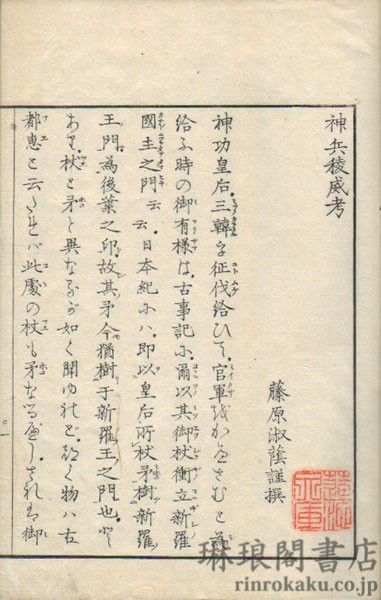 神兵稜威考
藤原淑蔭謹撰
神功皇后三韓を征伐給ひて官軍をかへさむと為
給ふ時の御有様は、古事記に爾以其御杖衝立新羅
國主之門云云、日本紀にハ、即以皇后所杖矛樹新羅
王門為後葉之印故其矛今猶樹于新羅王之門也と
あり、杖と矛と異なるが如く聞ゆれど、く物ハ古
都恵と云バ此處の杖も矛なるべしされば御
琳琅閣書店
rinrokaku.co.jp